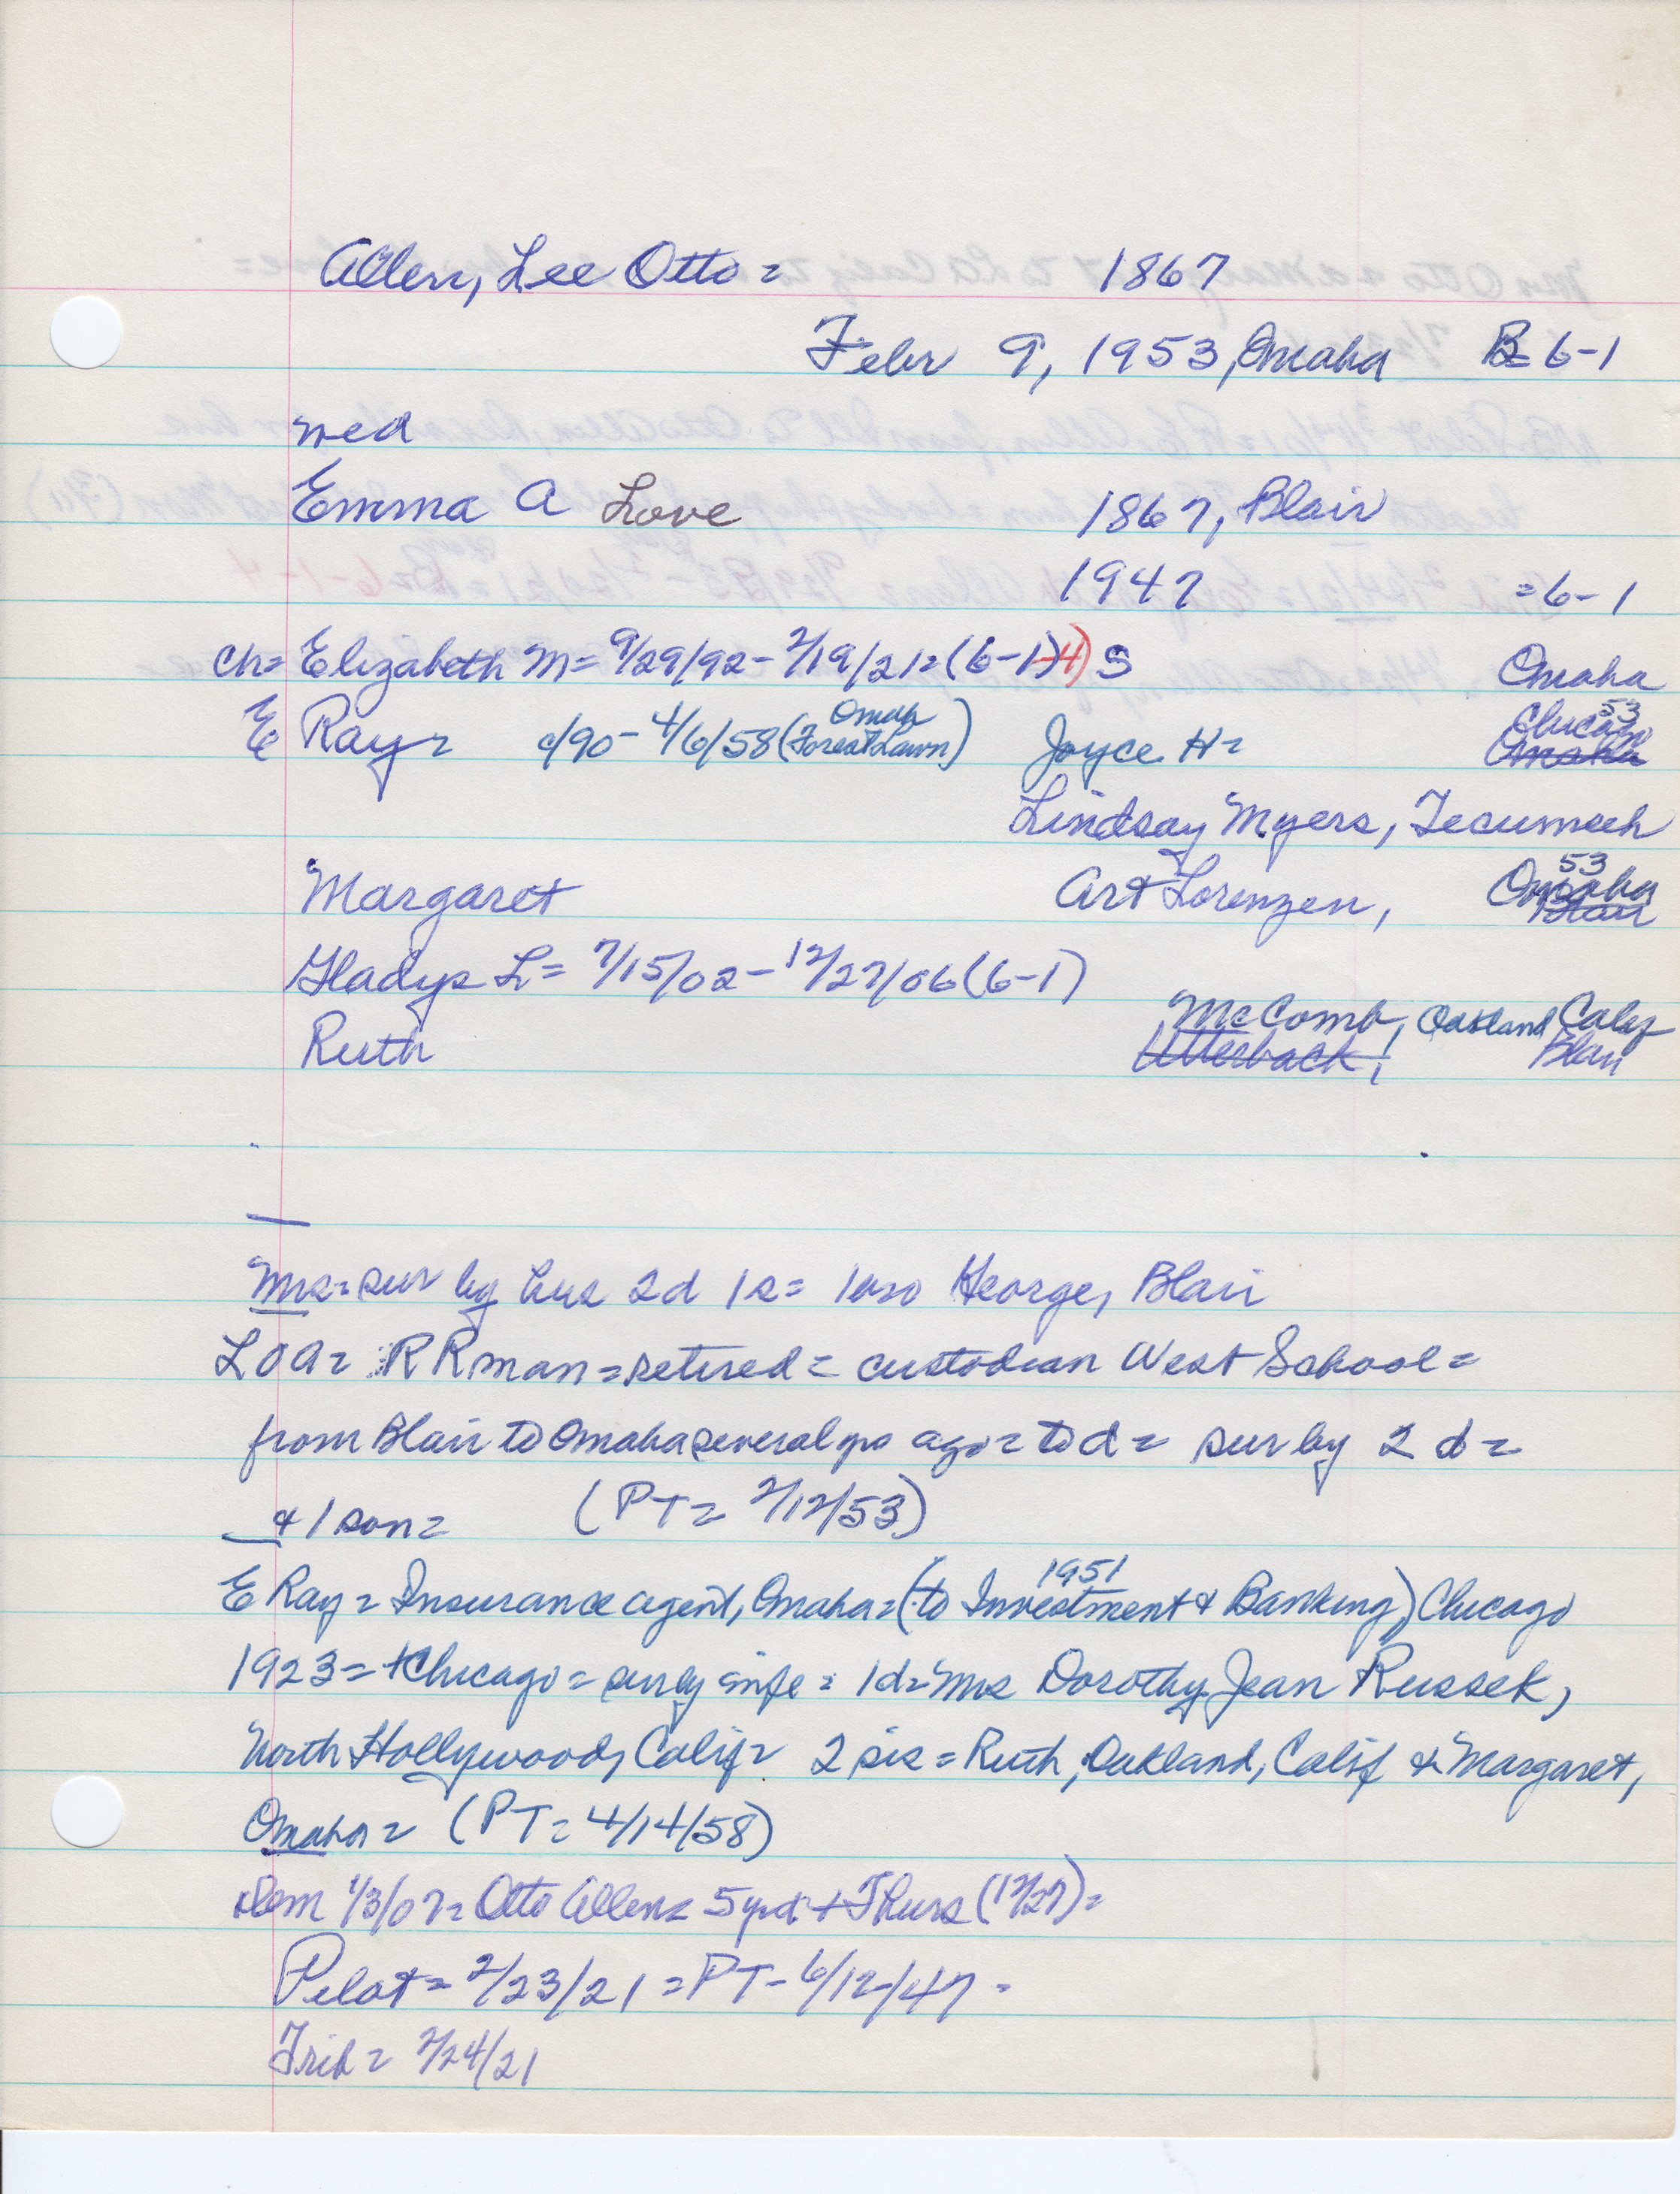 Allen, Lee Otto = 1867
Febr 9, 1953, Omaha B= 6-1
med
Emma A Love 1867, Blair
1947 = 6-1
ch= Elizabeth M= 9/29/92 - 2/19/21= (6-1)-4) S Omaha
E Ray = c/90 - 4/6/58 (Omah Forest Lawn) Joyce H= Chicago 53 Omaha
Lindsay Myers, Tecumseh
Margaret Art Lorenzen, Omaha 53 Blair
Gladys L= 7/15/02 - 12/27/06 (6-1)
McComb, Oakland, Calif
Ruth Utterback, Blair
Mrs= sur by hus 2d 1s= 1bro George, Blair
LOA= RRman = retired = custodian West School =
from Blair to Omaha several yrs ago = to d = sur by 2 d =
+ 1 son = (PT= 2/12/53)
E Ray = Insurance agent, Omaha = (to Investment & Banking) 1951 Chicago
1923 = +Chicago = surby wife = 1d= Mrs Dorothy Jean Russek,
North Hollywood, Calif = 2 sis = Ruth, Oakland, Calif & Margaret,
Omaha = (PT= 4/14/58)
Dem 1/3/07= Otto Allens 5yrd + Thurs (12/27)=
Pilot = 2/23/21 = PT - 6/12/47 -
Trib = 2/24/21